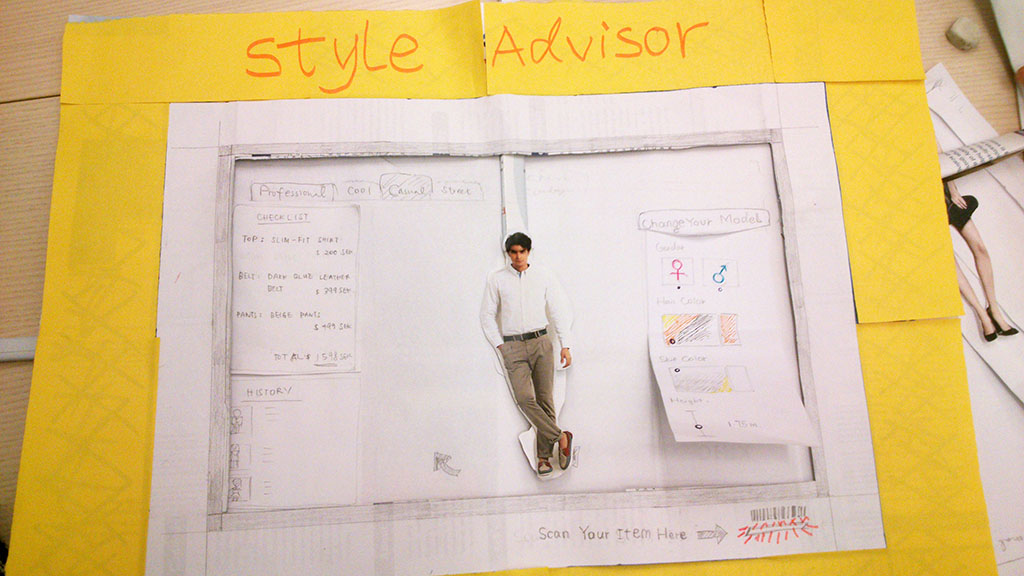 Style Advisor
Professional Cool Casual Street
CHECKLIST
TOP: SLIM-FIT SHIRT
$ 200 SEK
BELT: DARK BLUE LEATHER
BELT $ 399 SEK
PANTS: BEIGE PANTS
$ 999 SEK
TOTAL $ 1598 SEK
HISTORY
Change Your Model
Gender
Hair Color
Color
Height
Scan Your Item Here